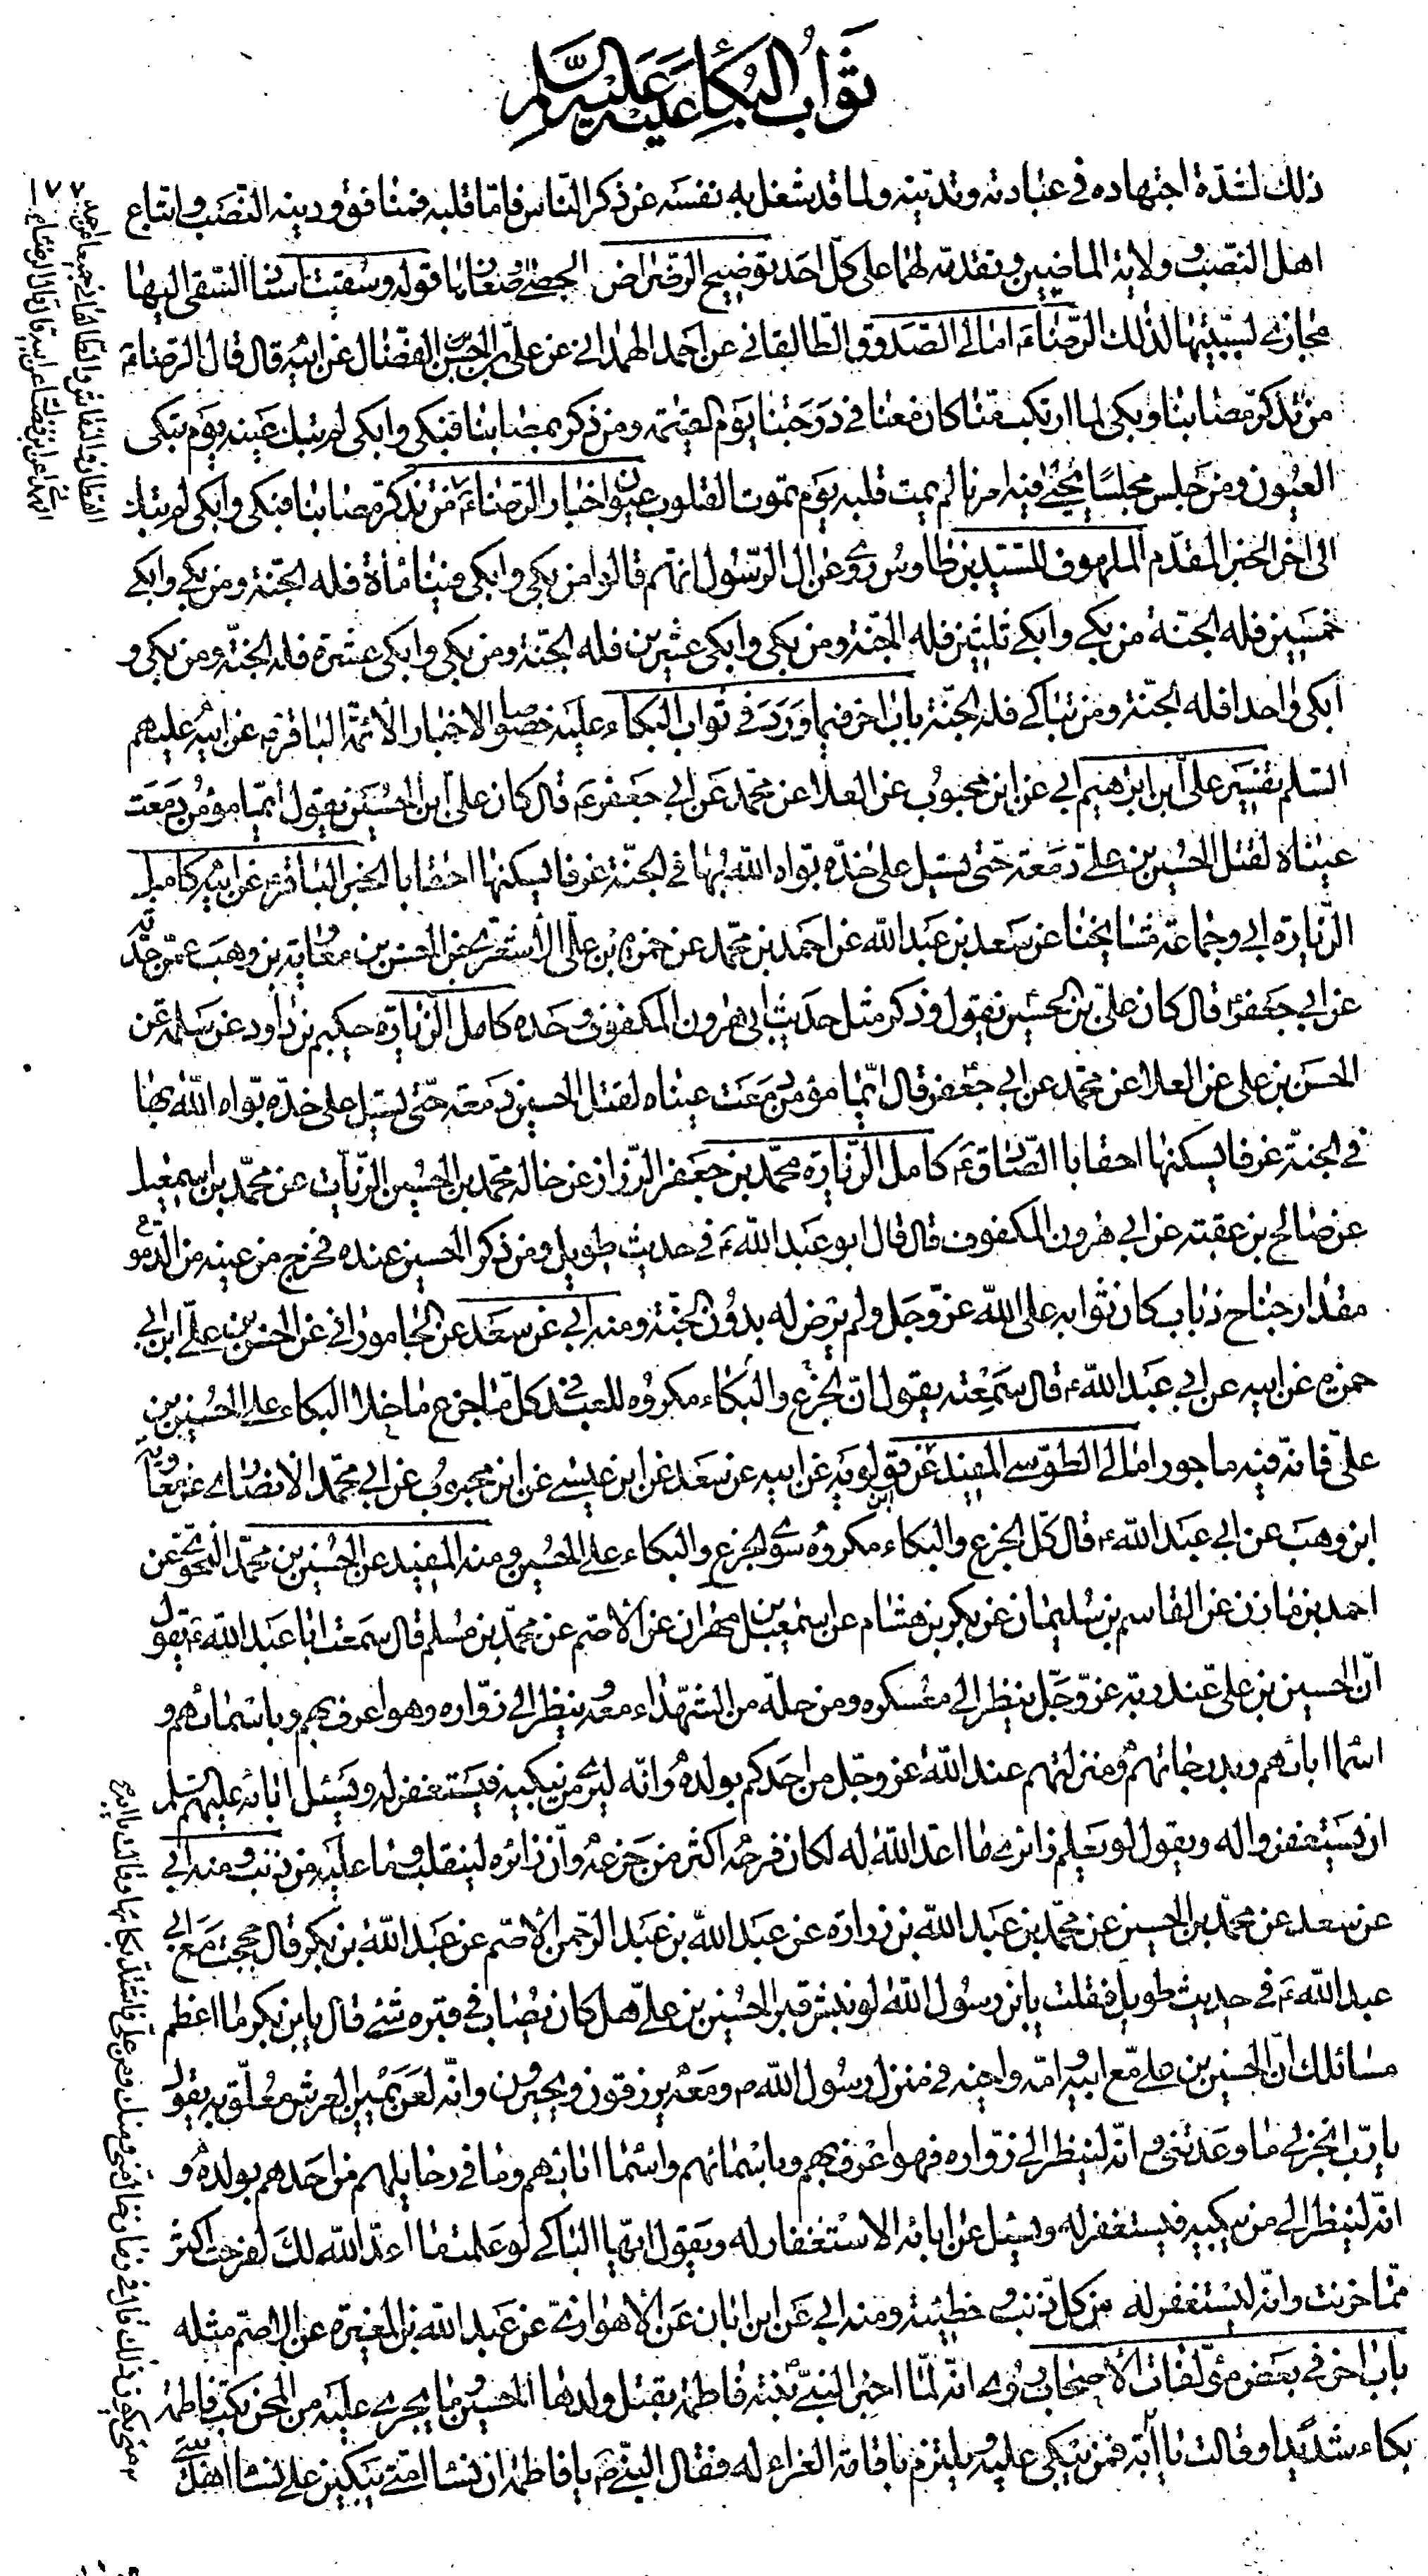 ثواب البكاء عليه عليه السلم
ذلك لشدّة اجتهاده في عبادته وتدينه ولما قد شغل به نفسه عن ذكر الناس فامّا قلبه فمنافق ودينه النصب واتباع
اهل النصب وولاية الماضيين وتقدمه لهما على كلّ احد توضيح الرضراض الحصى وصغارها قوله وسقيت اسنا السقى اليها
مجازى لسببيتها لذلك الرضاء امالى الصدوق الطالقاني عن احمد الهمداني عن علي بن الحسن الفضال عن ابيه قال قال الرضاء
من تذكر مصابنا وبكى لما ارتكب منا كان معنا في درجتنا يوم القيمة ومن ذكر بمصابنا فبكى وابكى لم تبك عينه يوم تبكى
العيون ومن جلس مجلسا يحيى فيه امرنا لم يمت قلبه يوم تموت القلوب عيون اخبار الرضاء من تذكر مصابنا فبكى وابكى لم تبك
الى اخر الخبر المقدّم الملهوف للسيد بن طاوس روى عن ال الرّسول انهم قالوا من بكى وابكى فينا مأة فله الجنّة ومن بكى وابكى
خمسين فله الجنة من بكى وابكى ثلثين فله الجنة ومن بكى وابكى عشرين فله الجنّة ومن بكى وابكى عشرة فله الجنّة ومن بكى و
ابكى واحدا فله الجنّة ومن تباكى فله الجنّة باب اخر فيما ورد في ثواب البكاء عليه خصوصا الاخبار الائمة الباقر عن ابيه عليهم
السلم تفسير علي ابن ابرهيم ابي عن ابن محبوب عن العلا عن محمد عن ابي جعفر قال كان علي ابن الحسين يقول ايّما مؤمن دمعت
عيناه لقتل الحسين بن علي دمعة حتى تسيل على خدّه بوّاه الله بها في الجنّة غرفا يسكنها احقابا الخبر الباقر عن ابيه كامل
الزيارة ابي وجماعة مشايخنا عن سعد بن عبد الله عن احمد بن محمد عن حمزة بن علي الاشعري عن الحسن بن معاوية بن وهب عمن حدثه
عن ابي جعفر قال كان علي بن الحسين يقول وذكر مثل حديث ابي هرون المكفوف وحده كامل الزيارة حكيم بن داود عن سلمة عن
الحسن بن علي عن العلا عن محمد عن ابي جعفر قال ايّما مؤمن دمعت عيناه لقتل الحسين دمعة حتّى تسيل على خدّه بوّاه الله بها
في الجنّة غرفا يسكنها احقابا الصادق كامل الزيارة محمد بن جعفر الرزاز عن خاله محمد بن الحسين الزيات عن محمّد بن اسمعيل
عن صالح بن عقبة عن ابي هرون المكفوف قال قال ابو عبد الله في حديث طويل ومن ذكر الحسين عنده فخرج من عينه من الدموع
مقدار جناح ذباب كان ثوابه على الله عزّ وجل ولم يرض له بدون الجنّة ومنه ابي عن سعد عن الجاموراني عن الحسن بن علي ابن ابي
حمزة عن ابيه عن ابي عبد الله قال سمعته يقول انّ الجزع والبكاء مكروه للعبد في كلّ ما جزع ما خلا البكاء على الحسين بن
علي فانّه فيه ماجور امالى الطوسي المفيد عن ابن قولويه عن ابيه عن سعد عن ابن عيسى عن ابن محبوب عن ابي محمد الانصاري عن معاوية
ابن وهب عن ابي عبد الله قال كلّ الجزع والبكاء مكروه سوى الجزع والبكاء على الحسين ومنه المفيد عن الحسين بن محمّد النحوي عن
احمد بن مازن عن القاسم بن سليمان عن بكر بن هشام عن اسمعيل بن مهران عن الاصم عن محمّد بن مسلم قال سمعت ابا عبد الله يقول
انّ الحسين بن علي عند ربه عزّ وجل ينظر الى معسكره ومن حلّه من الشهداء معه وينظر الى زوّاره وهو اعرف بهم وباسمائهم و
اسما ابائهم وبدرجاتهم ومنزلتهم عند الله عز وجل من احدكم بولده وانّه ليرى من يبكيه فيستغفر له ويسئل ابائه عليهم السلم
ان يستغفروا له ويقول لو يعلم زائري ما اعدّ الله له لكان فرحه اكثر من جزعه وانّ زائره لينقلب وما عليه من ذنب ومنه ابي
عن سعد عن محمّد بن الحسين عن محمّد بن عبد الله بن زرارة عن عبد الله بن عبد الرحمن الاصم عن عبد الله بن بكر قال حججت مع ابي
عبد الله في حديث طويل فقلت يا بن رسول الله لو نبش قبر الحسين بن علي هل كان يصاب في قبره شئ قال يا بن بكر ما اعظم
مسائلك انّ الحسين بن علي مع ابيه وامّه واخيه في منزل رسول الله ومعه يرزقون ويحبرون وانّه لعن يمين العرش متعلّق به يقول
يا ربّ انجز لي ما وعدتني وانّه لينظر الى زوّاره فهو اعرف بهم وباسمائهم واسما ابائهم وما في رحالهم من احدهم بولده و
انّه لينظر الى من يبكيه فيستغفر له ويسئل عن ابائه الاستغفار له ويقول ايّها الباكى لو علمت ما اعدّ الله لك لفرحت اكثر
ممّا حزنت وانّه ليستغفر له من كلّ ذنب وخطيئة ومنه ابي عن ابن ابان عن الاهوازي عن عبد الله بن المغيرة عن الاصم مثله
باب اخر في بعض مؤلفات الاصحاب روى انّه لمّا اخبر النبيّ بنته فاطمة بقتل ولدها الحسين وما يجرى عليه من المحن بكت فاطمة
بكاء شديدا وقالت يا ابة فمن يبكى عليه ويلتزم باقامة العزاء له فقال النبي يا فاطمة ان نسا امتى يبكين على نسا اهل بيتي
متى يكون ذلك قال في زمان خال منّي ومنك ومن علي فاشتدّ بكائها وقالت يا ابة